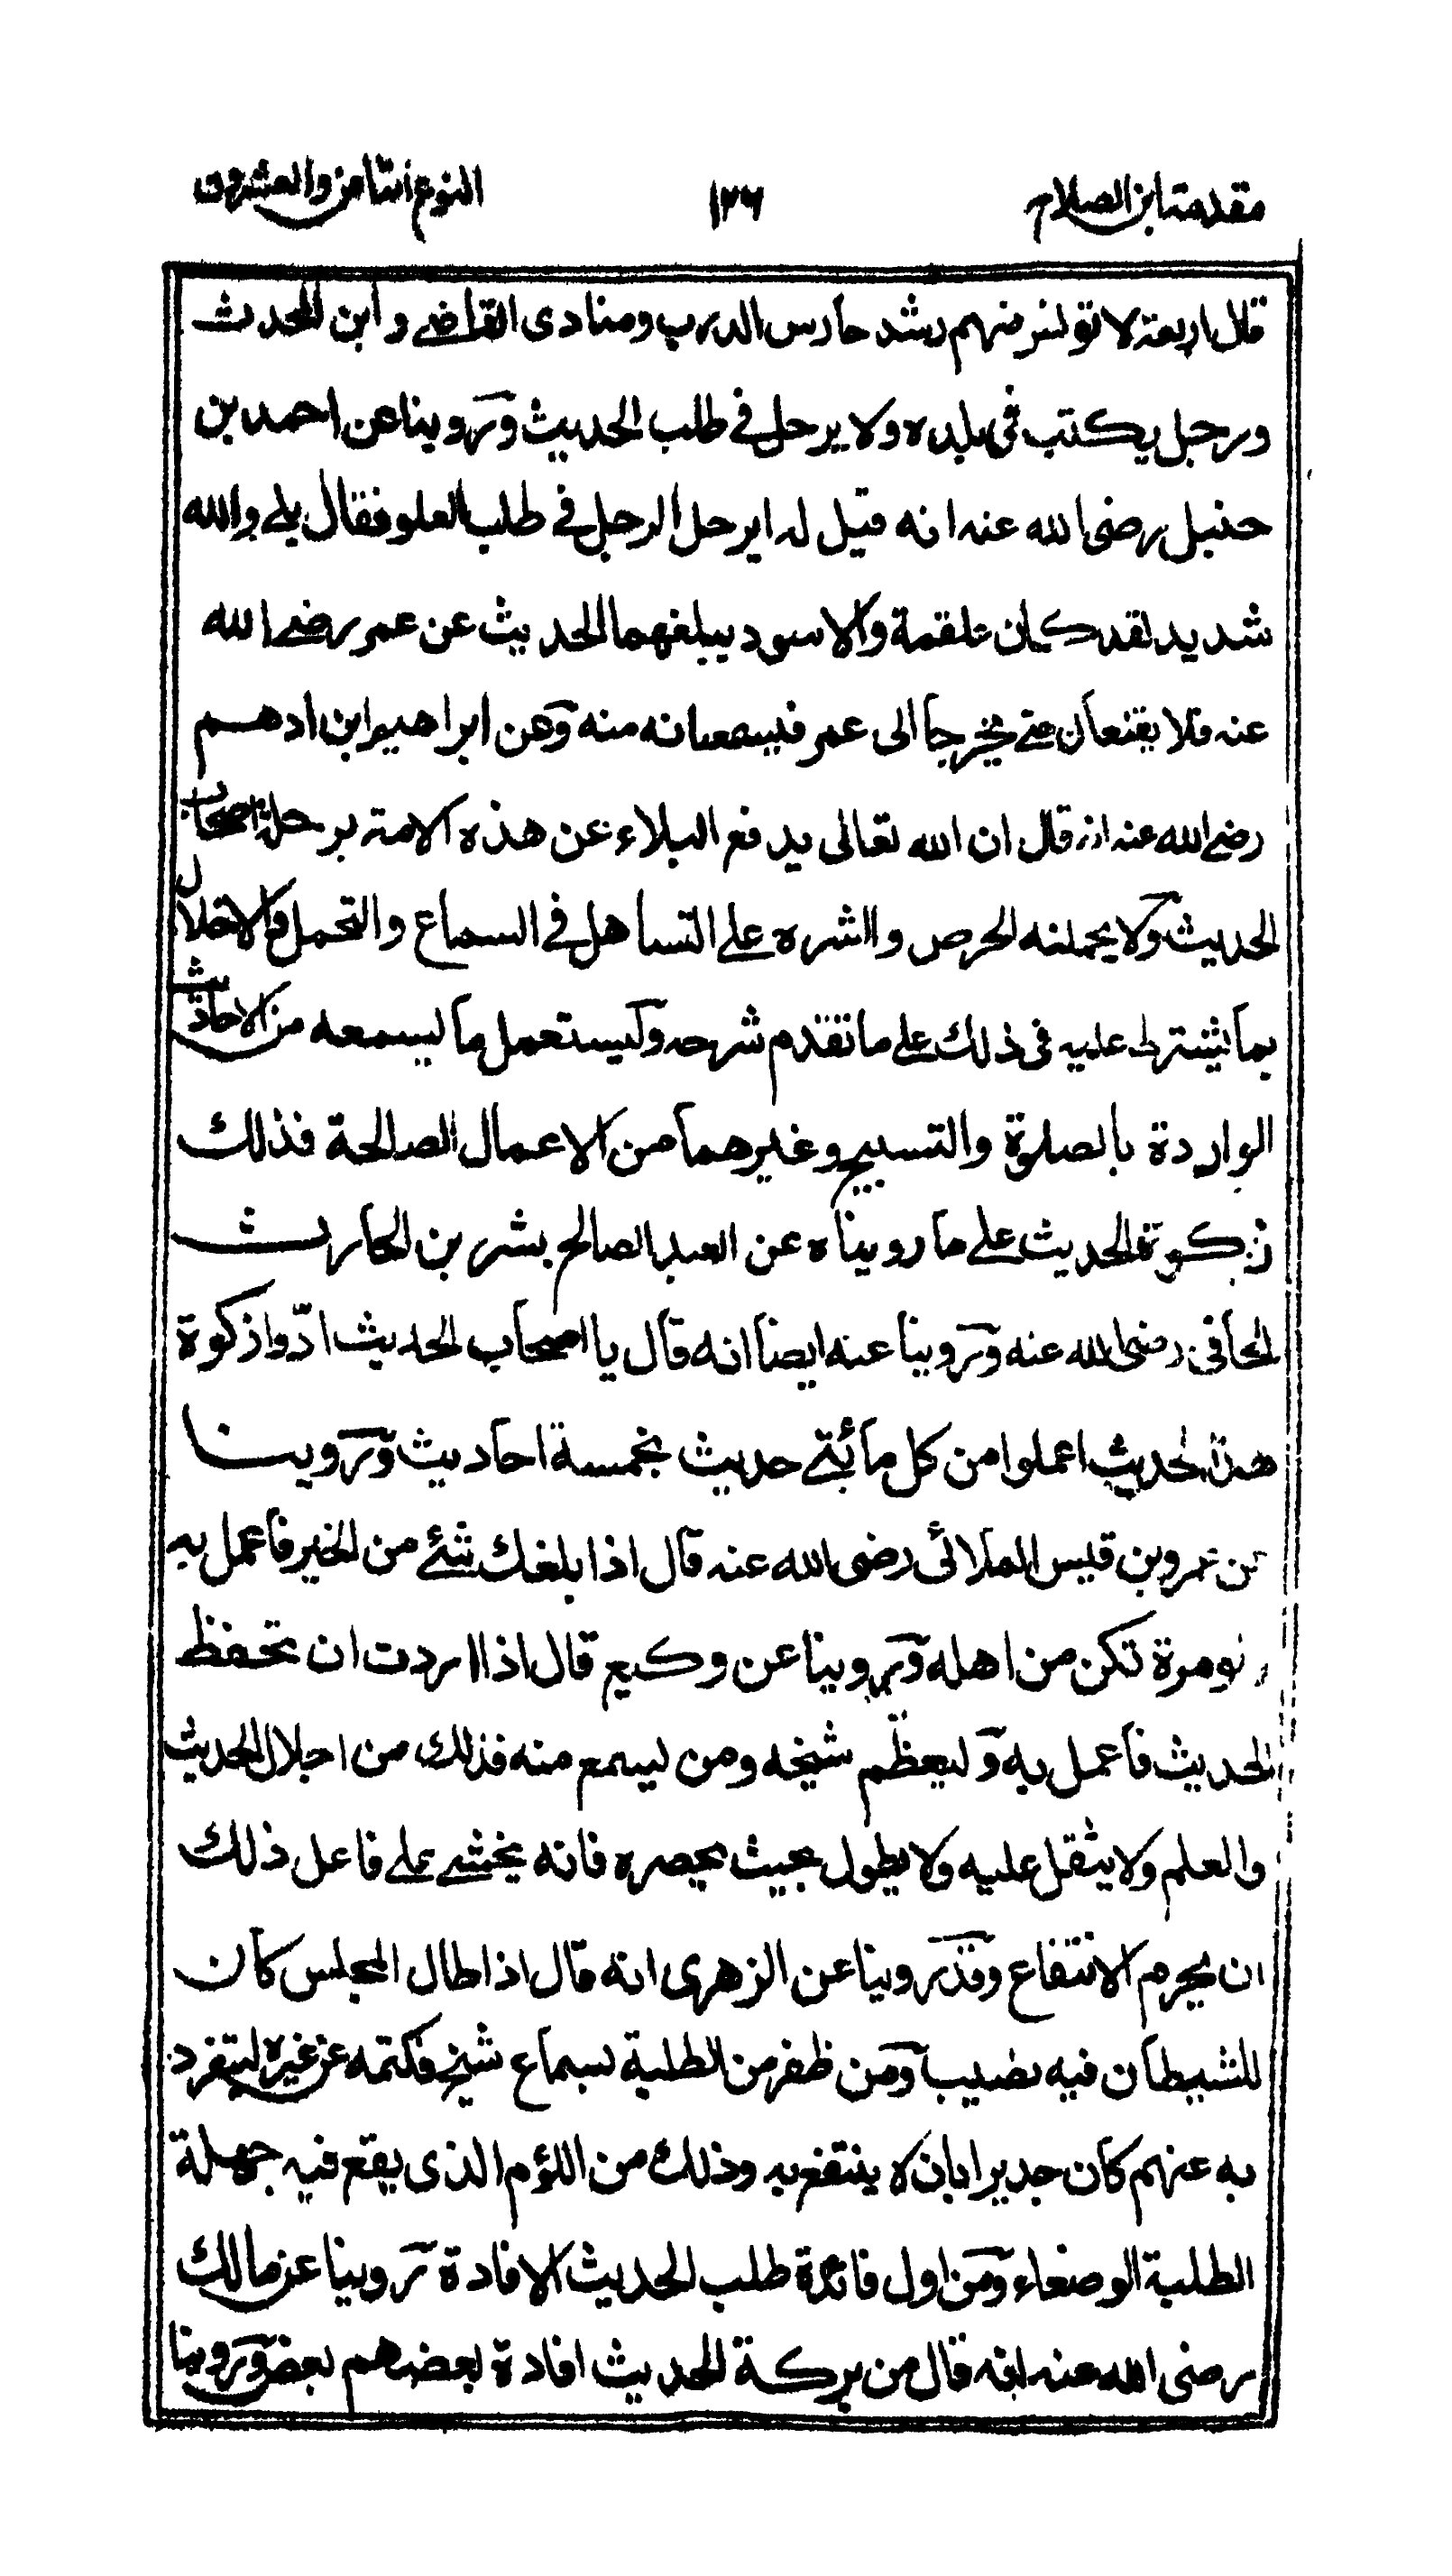 مقدمة ابن الصلاح ١٢٦ النوع الثامن والعشرون
قال اربعة لا تونس منهم رشد حارس الدرب ومنادى القاضے وابن المحدث
ورجل يكتب فى بلده ولا يرحل فے طلب الحديث وروينا عن احمد بن
حنبل رضى الله عنه انه قيل له ايرحل الرجل فے طلب العلو فقال بلے والله
شديد لقد كان علقمة والاسود يبلغهما الحديث عن عمر رضے الله
عنه فلا يقنعان حتے يخرجا الى عمر فيسمعانه منه وعن ابراهيم ابن ادهم
رضے الله عنه انه قال ان الله تعالى يدفع البلاء عن هذه الامة برحلة اصحاب
الحديث ولا يحملنه الحرص والشره علے التساهل فے السماع والتحمل والاخلال
بما يشترط عليه فى ذلك علے ما تقدم شرحه وليستعمل ما يسمعه من الاحاديث
الواردة بالصلوة والتسبيح وغيرهما من الاعمال الصالحة فذلك
زكوة الحديث علے ما رويناه عن العبد الصالح بشر بن الحارث
الحافى رضى الله عنه وروينا عنه ايضا انه قال يا اصحاب الحديث ادّوا زكوة
هذا الحديث اعملوا من كل مائتے حديث بخمسة احاديث وروينا
عن عمرو بن قيس الملائى رضى الله عنه قال اذا بلغك شئے من الخير فاعمل به
ولو مرة تكن من اهله وروينا عن وكيع قال اذا اردت ان تحفظ
الحديث فاعمل به وليعظّم شيخه ومن يسمع منه فذلك من اجلال الحديث
والعلم ولا يثقل عليه ولا يطول بحيث يضجره فانه يخشے علے فاعل ذلك
ان يحرم الانتفاع وقد روينا عن الزهرى انه قال اذا طال المجلس كان
للشيطان فيه نصيب ومن ظفر من الطلبة بسماع شيخ فكتمه عن غيره لينفرد
به عنهم كان جديرا بان لا ينتفع به وذلك من اللؤم الذى يقع فيه جهلة
الطلبة الوضعاء ومن اول فائدة طلب الحديث الافادة روينا عن مالك
رضى الله عنه انه قال من بركة الحديث افادة بعضهم بعضا وروينا